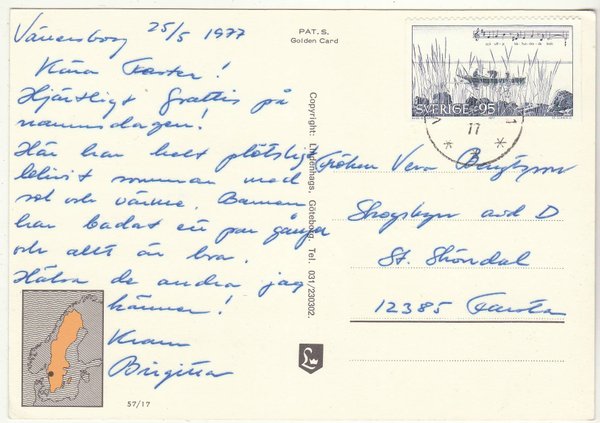 Vänersborg 25/5 1977
Kära Faster!
Hjärtligt grattis på
namnsdagen!
Här har helt plötslig
blivit sommar med
sol och värme. Barnen
har badat ett par gånger
och allt är bra.
Hälsa de andra jag
känner!
Kram
Birgitta
57/17
PAT. S.
Golden Card
Copyright: Lindenhags, Göteborg. Tel. 031/230302.
L
SVERIGE 95
17
Fröken Vera Bengtsson
Skogsbyn avd D
St. Sköndal
12385 Farsta